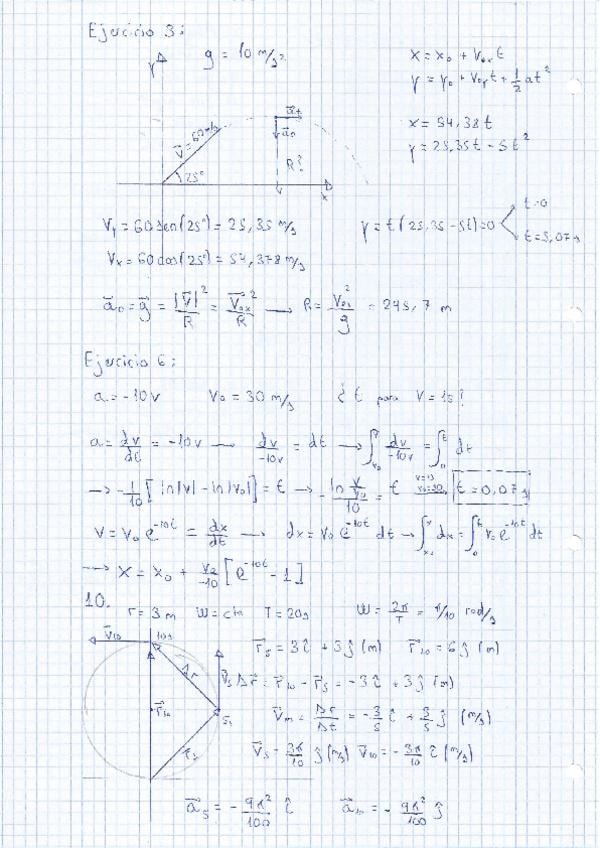 Ejercicio 3:
g = 10 m/s²
x = x₀ + v₀ₓt
y = y₀ + v₀ᵧt + 1/2 at²
x = 54,38t
y = 25,35t - 5t²
Y
V = 60 m/s
25°
R?
x
Vy = 60 sen(25°) = 25,35 m/s
Vx = 60 cos(25°) = 54,378 m/s
y = t(25,35 - 5t) = 0
t=0
t=5,07s
a⃗ₙ = g⃗ = |V⃗|²/R = V⃗₀ₓ²/R → R = V₀ₓ²/g = 295,7 m
Ejercicio 6:
a = -10v V₀ = 30 m/s ¿t para V = 15?
a = dv/dt = -10v → dv/-10v = dt → ∫ dv/-10v = ∫ dt
→ -1/10 [ln|v| - ln|v₀|] = t → -ln v/v₀ /10 = t V=15 V₀=30 t = 0,07s
V = V₀ e^-10t = dx/dt → dx = V₀ e^-10t dt → ∫ dx = ∫ V₀ e^-10t dt
→ x = x₀ + V₀/-10 [e^-10t - 1]
10.
r = 3 m W = cta T = 20s W = 2π/T = π/10 rad/s
V⃗₁₀ 10s
r⃗₅ = 3î + 3ĵ (m) r⃗₁₀ = 6ĵ (m)
Δr
V⃗₅ Δr⃗ = r⃗₁₀ - r⃗₅ = -3î + 3ĵ (m)
r⃗₁₀
5s
V⃗m = Δr/Δt = -3/5 î + 3/5 ĵ (m/s)
r⃗₅
V⃗₅ = 3π/10 ĵ (m/s) V⃗₁₀ = -3π/10 î (m/s)
a⃗₅ = - 9π²/100 î a⃗₁₀ = - 9π²/100 ĵ